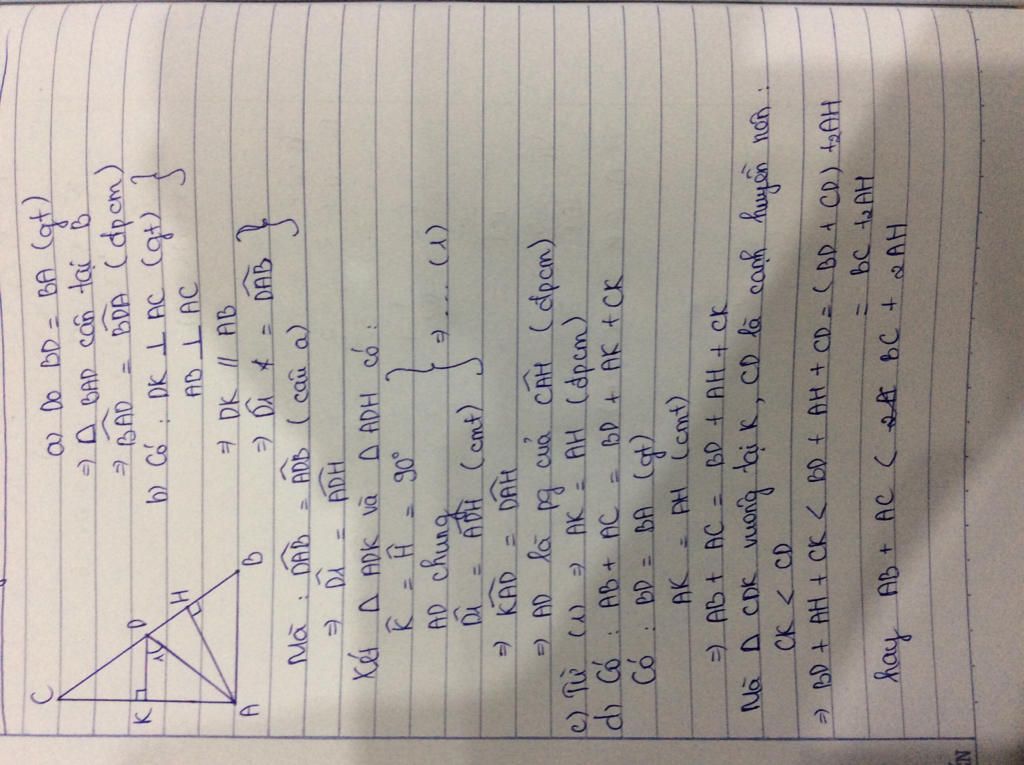 C
K
D
1
H
A
B
a) Do BD = BA (gt)
⇒ Δ BAD cân tại B
⇒ BAD̂ = BDÂ (đpcm)
b) Có : DK ⊥ AC (gt) }
AB ⊥ AC
⇒ DK // AB
⇒ D̂1 = DAB̂ }
Mà : DAB̂ = ADB̂ (câu a)
⇒ D̂1 = ADĤ
Xét Δ ADK và Δ ADH có :
K̂ = Ĥ = 90° }
AD chung } ⇒ .... (1)
D̂1 = ADĤ (cmt)
⇒ KAD̂ = DAĤ
⇒ AD là pg của CAĤ (đpcm)
c) Từ (1) ⇒ AK = AH (đpcm)
d) Có : AB + AC = BD + AK + CK
Có : BD = BA (gt)
AK = AH (cmt)
⇒ AB + AC = BD + AH + CK
Mà Δ CDK vuông tại K, CD là cạnh huyền nên :
CK < CD
⇒ BD + AH + CK < BD + AH + CD = (BD + CD) + 2AH
= BC + 2AH
hay AB + AC < BC + 2AH
IN